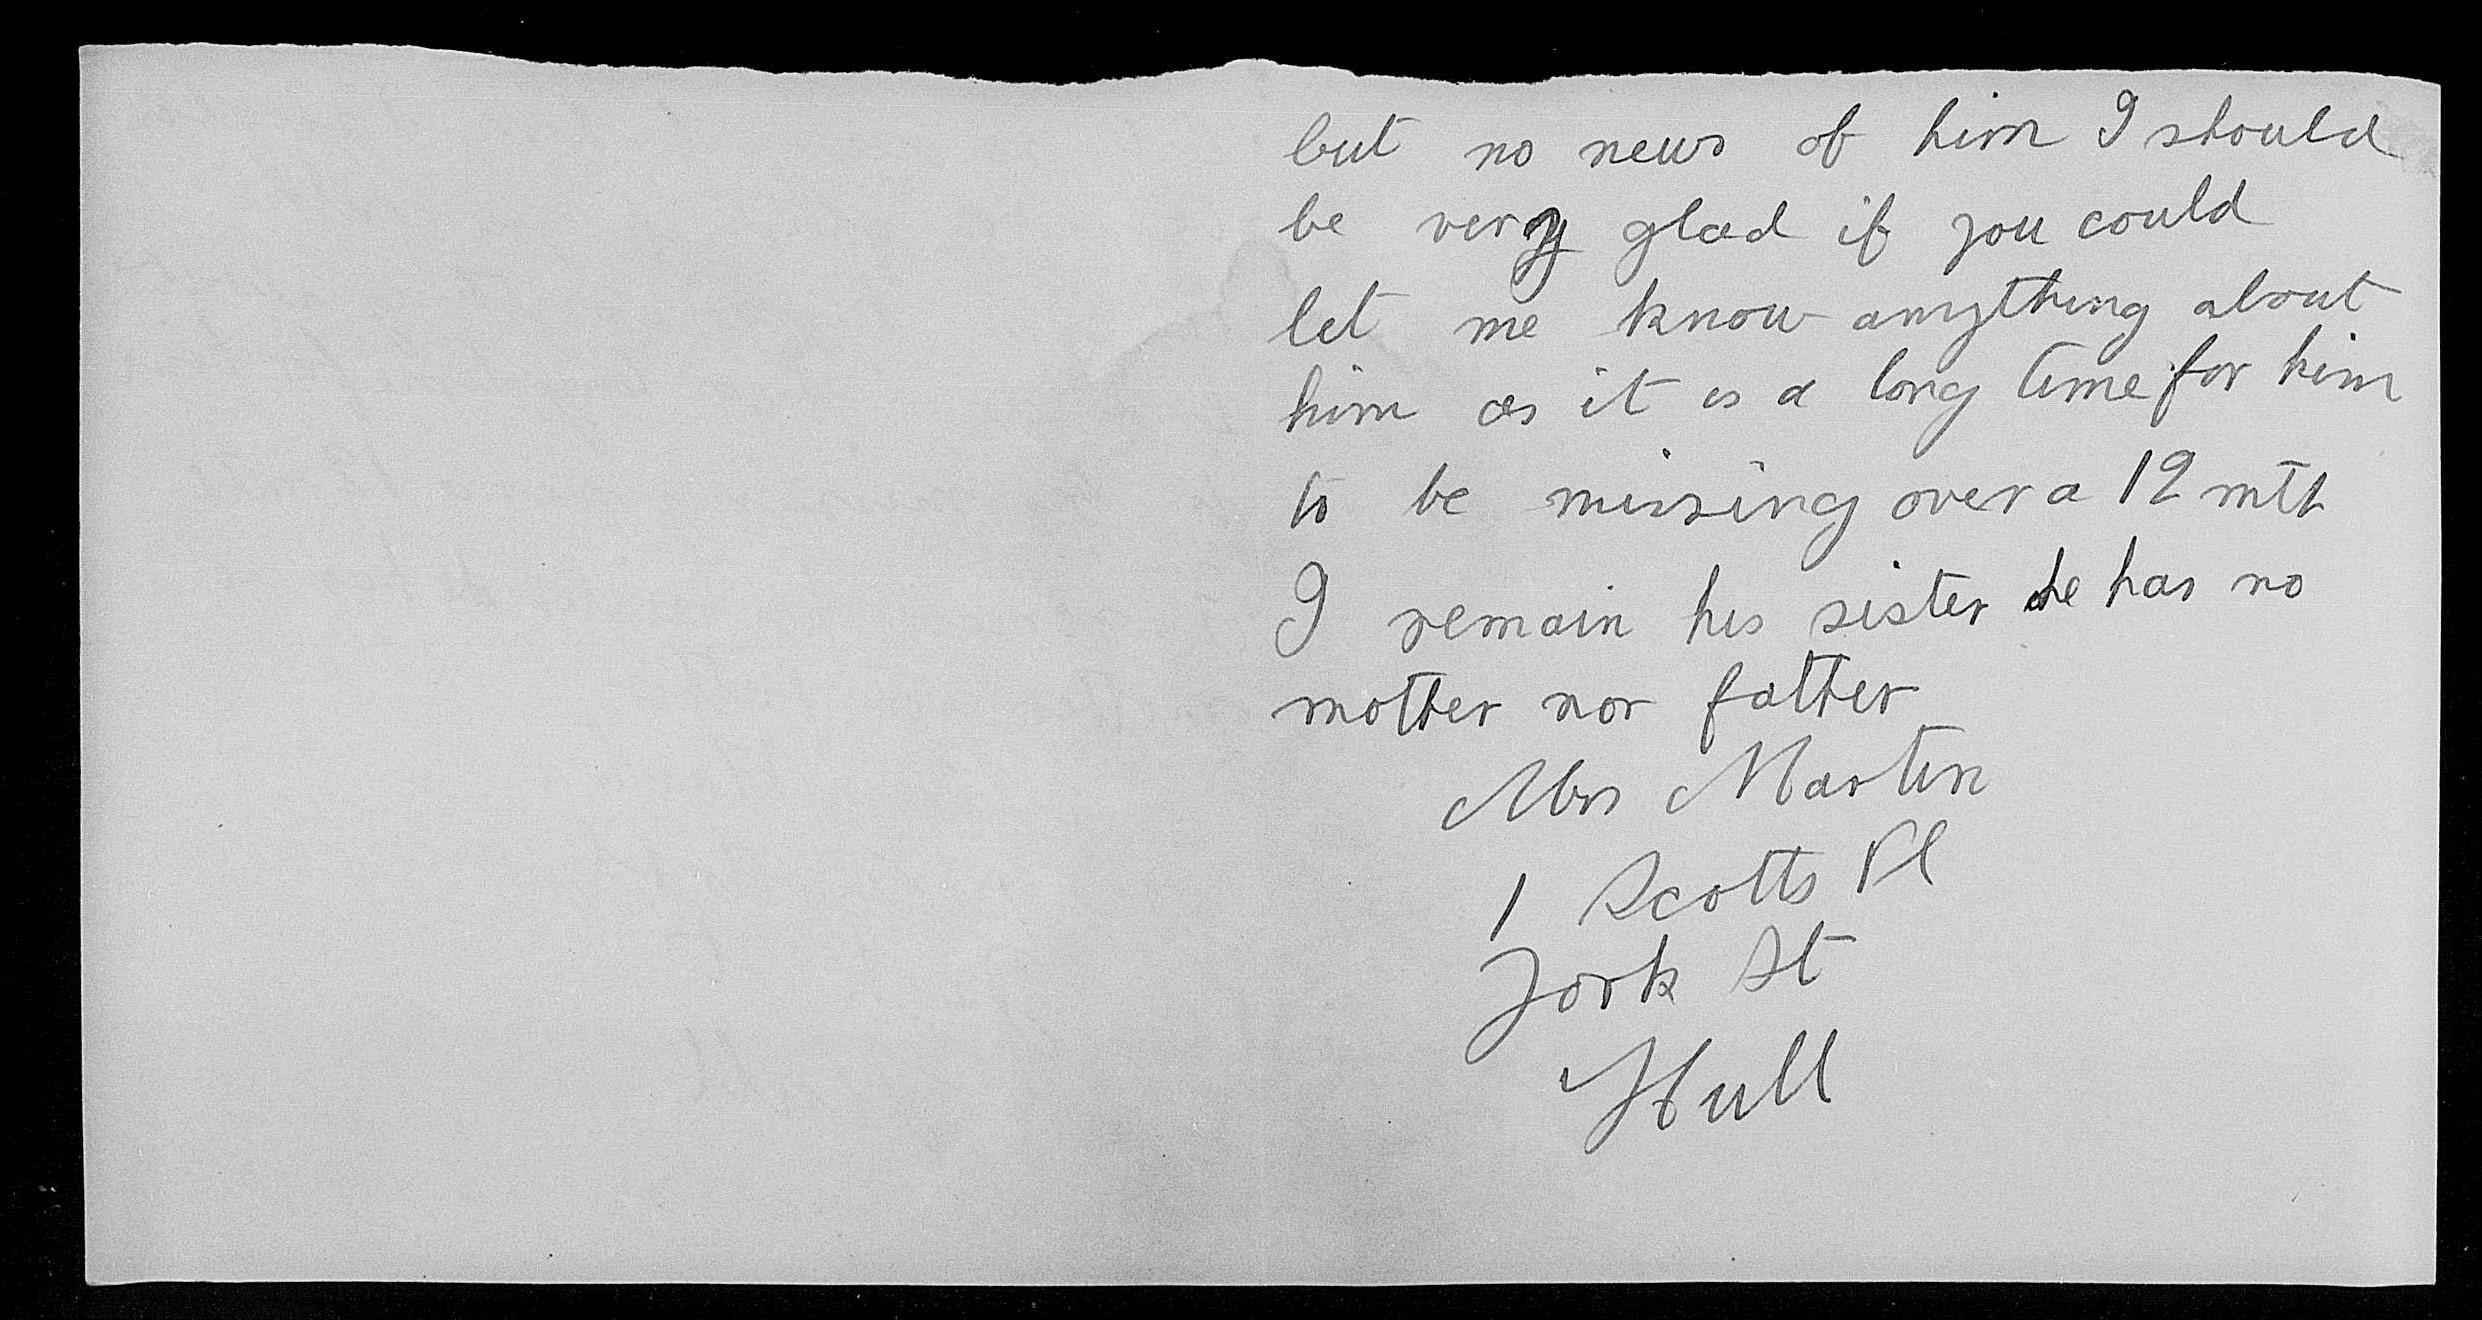 but no news of him I should
be very glad if you could
let me know anything about
him as it is a long time for him
to be missing over a 12 mth
I remain his sister he has no
mother nor father
Mrs Martin
1 Scotts Pl
York St
Hull